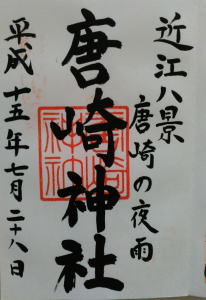 近江八景
唐崎の夜雨
唐崎神社
平成十五年七月二十八日